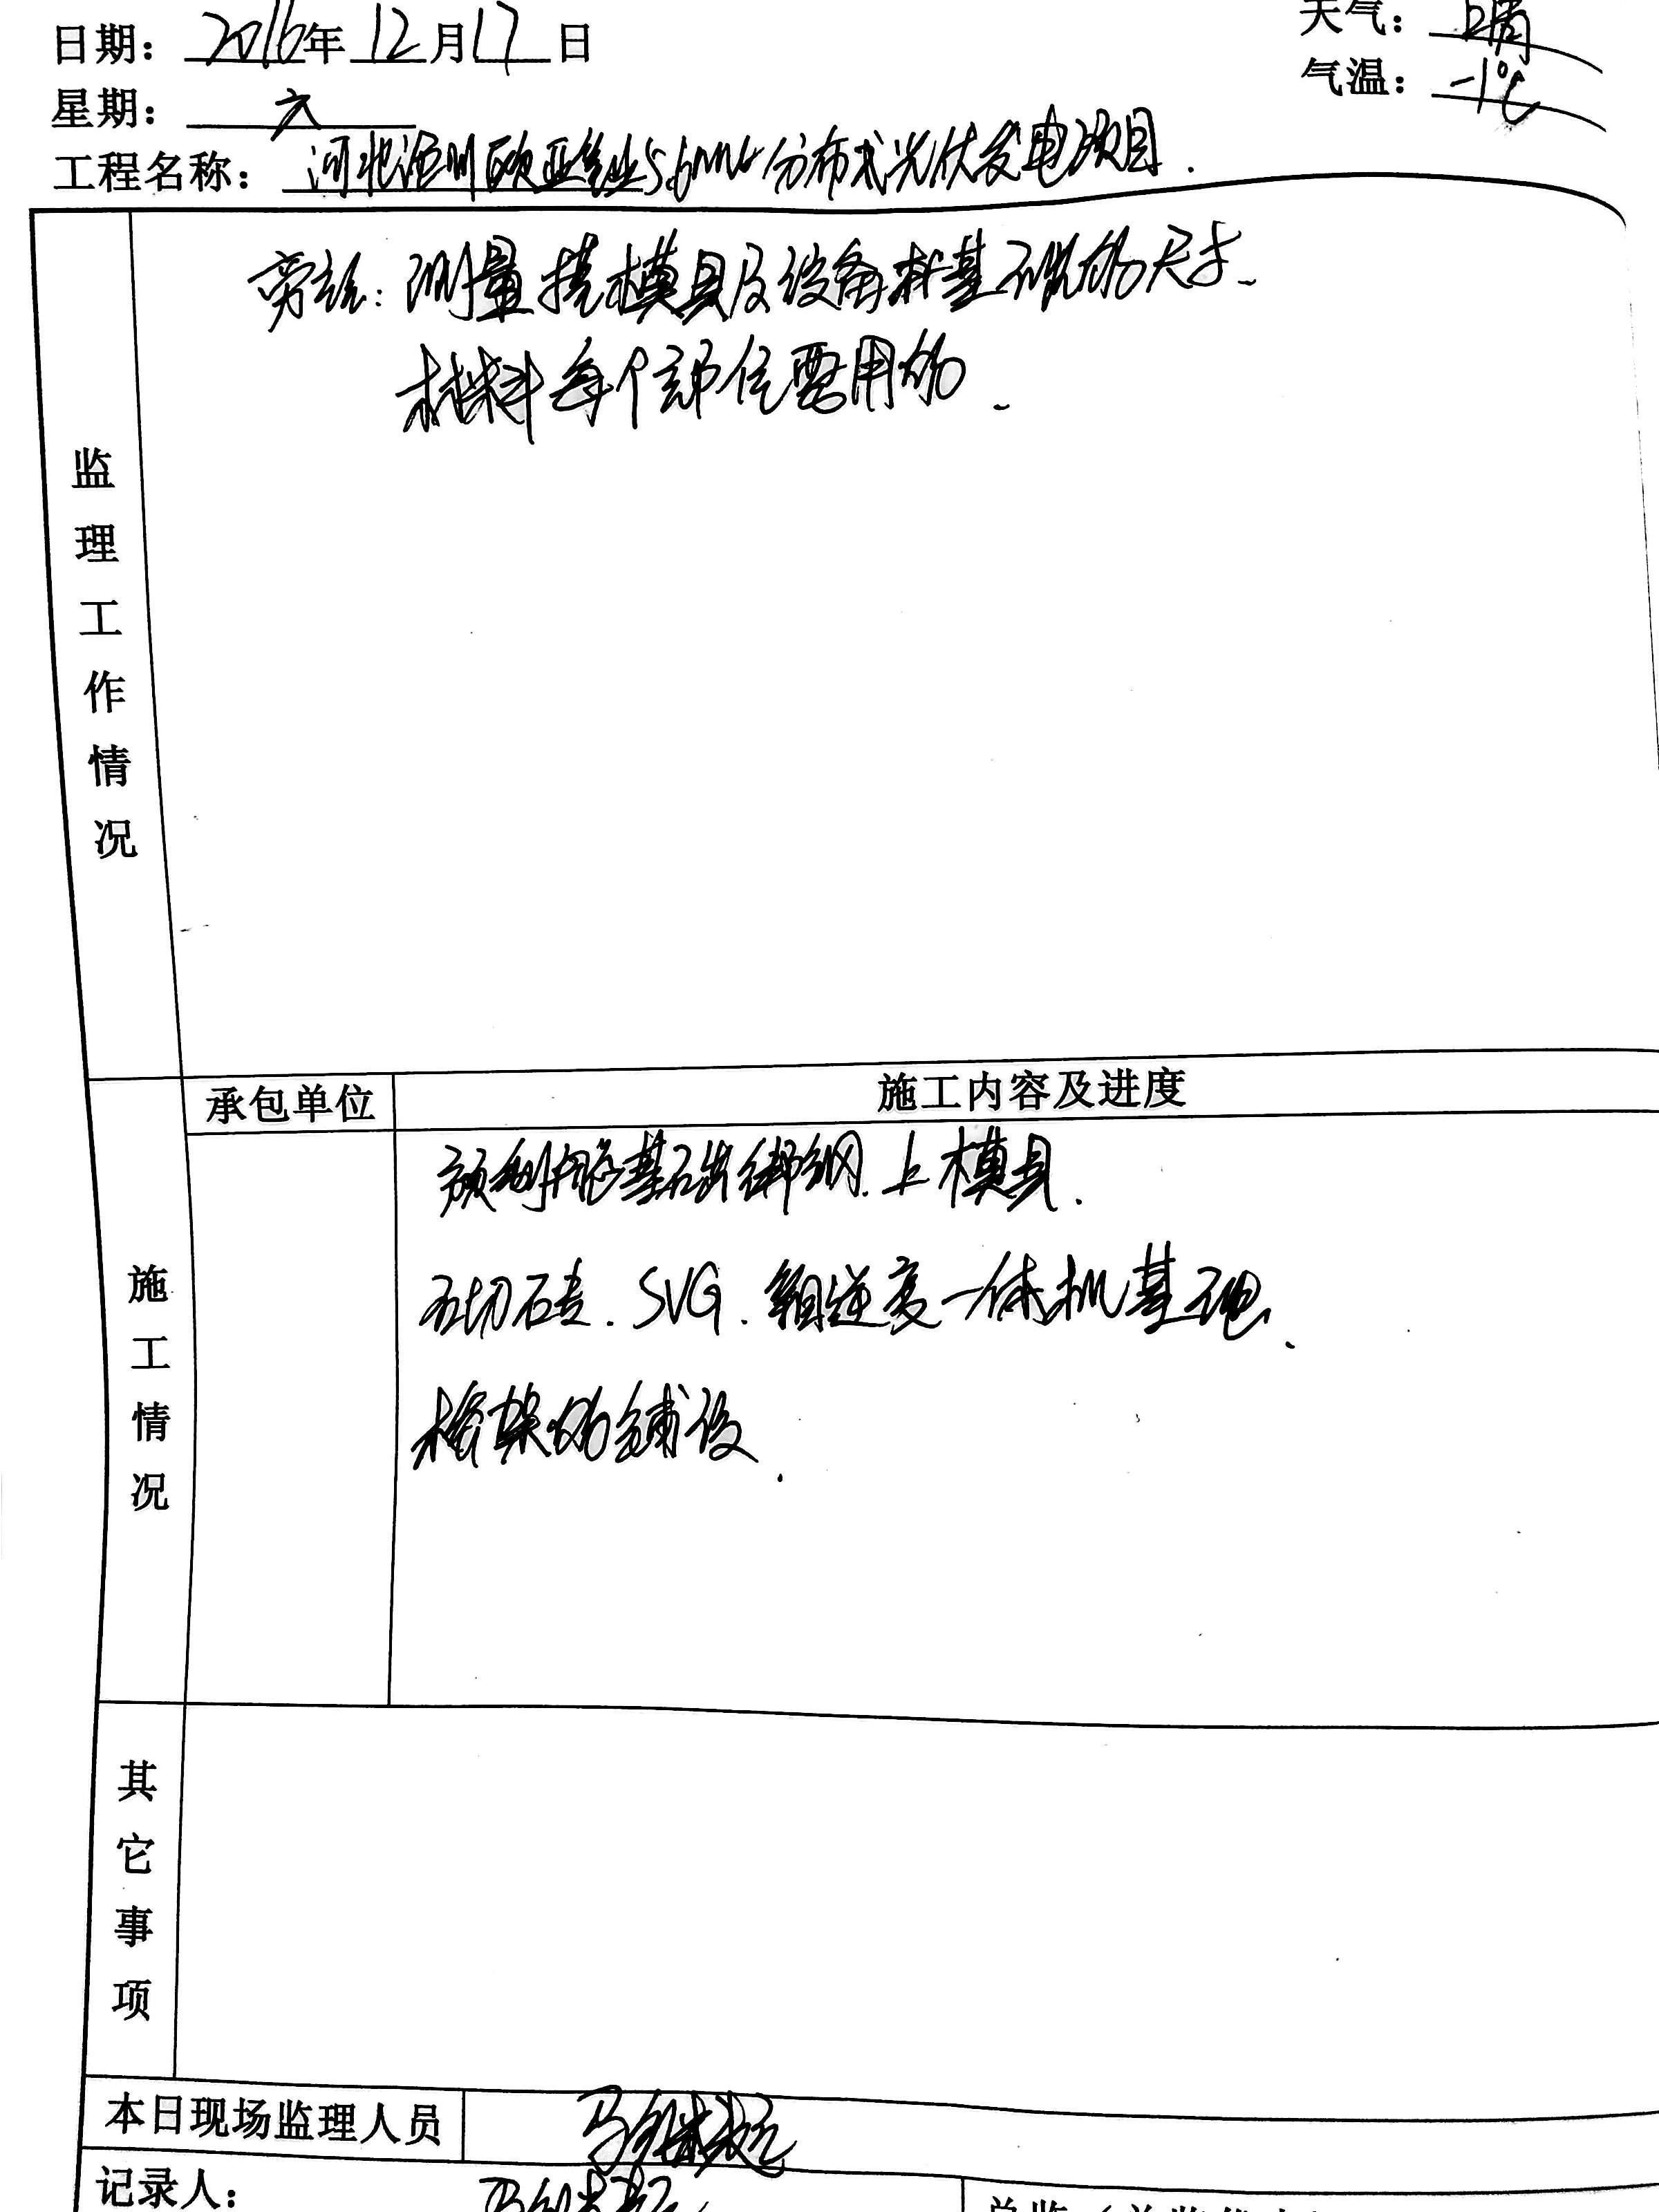 日期：2016年12月17日
天气：晴
气温：-1℃
星期：六
工程名称：河北 州欧亚 业5.6MW分布式光伏发电项目.
监理工作情况
旁站：测量搭模具及设备桩基础的尺寸.
材料每个部位要用的.
施工情况
承包单位
施工内容及进度
预制舱基础绑钢.上模具.
切砖.SVG.箱逆变一体机基地.
桥架的铺设.
其它事项
本日现场监理人员
马 超
记录人：